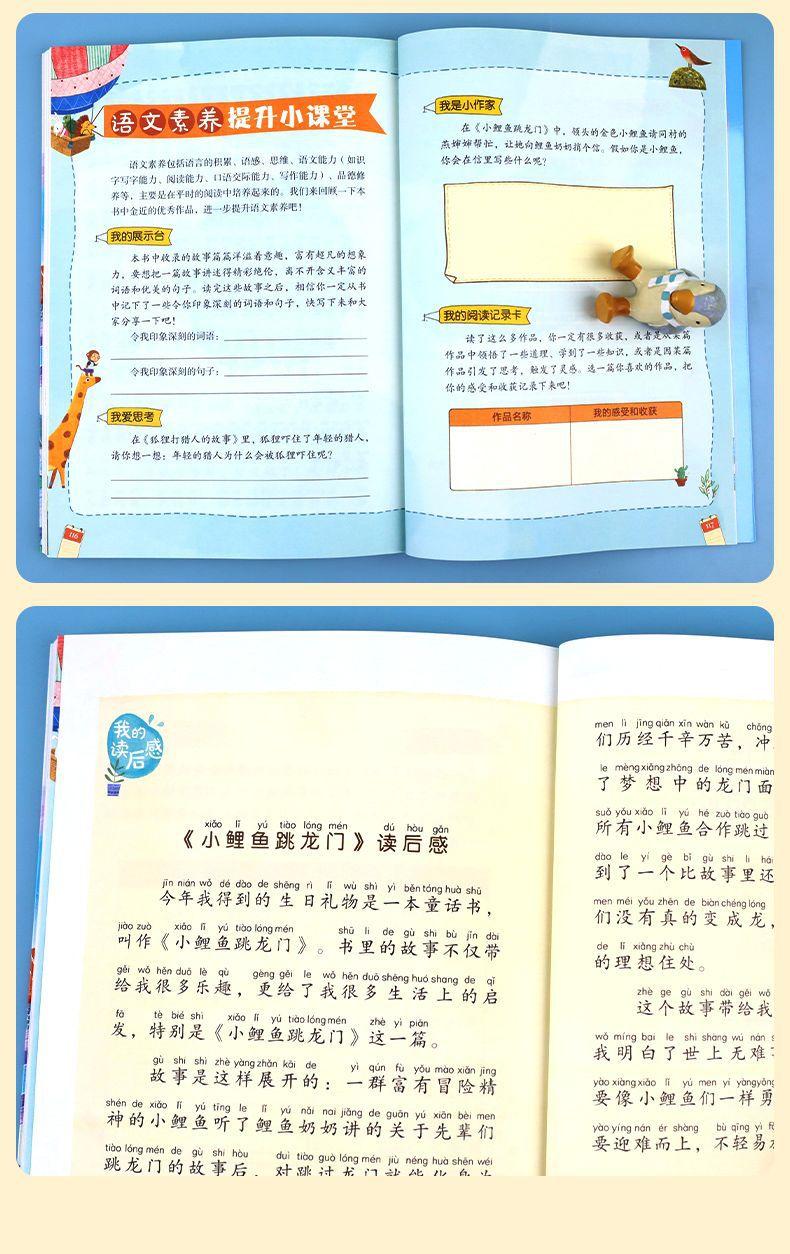 语文素养提升小课堂
语文素养包括语言的积累、语感、思维、语文能力（如识
字写字能力、阅读能力、口语交际能力、写作能力）、品德修
养等，主要是在平时的阅读中培养起来的。我们来回顾一下本
书中金近的优秀作品，进一步提升语文素养吧！
我的展示台
本书中收录的故事篇篇洋溢着意趣，富有超凡的想象
力，要想把一篇故事讲述得精彩绝伦，离不开含义丰富的
词语和优美的句子。读完这些故事之后，相信你一定从书
中记下了一些令你印象深刻的词语和句子，快写下来和大
家分享一下吧！
令我印象深刻的词语：
令我印象深刻的句子：
我爱思考
在《狐狸打猎人的故事》里，狐狸吓住了年轻的猎人，
请你想一想：年轻的猎人为什么会被狐狸吓住呢？
116
我是小作家
在《小鲤鱼跳龙门》中，领头的金色小鲤鱼请同村的
燕婶婶帮忙，让她向鲤鱼奶奶捎个信。假如你是小鲤鱼，
你会在信里写些什么呢？
我的阅读记录卡
读了这么多作品，你一定有很多收获，或者是从某篇
作品中领悟了一些道理、学到了一些知识，或者是因某篇
作品引发了思考，触发了灵感。选一篇你喜欢的作品，把
你的感受和收获记录下来吧！
作品名称 我的感受和收获
117
我的
读后感
xiǎo lǐ yú tiào lóng mén dú hòu gǎn
《小鲤鱼跳龙门》读后感
jīn nián wǒ dé dào de shēng rì lǐ wù shì yì běn tóng huà shū
今年我得到的生日礼物是一本童话书，
jiào zuò xiǎo lǐ yú tiào lóng mén shū li de gù shi bù jǐn dài
叫作《小鲤鱼跳龙门》。书里的故事不仅带
gěi wǒ hěn duō lè qù gèng gěi le wǒ hěn duō shēng huó shang de qǐ
给我很多乐趣，更给了我很多生活上的启
fā tè bié shì xiǎo lǐ yú tiào lóng mén zhè yì piān
发，特别是《小鲤鱼跳龙门》这一篇。
gù shi shì zhè yàng zhǎn kāi de yì qún fù yǒu mào xiǎn jīng
故事是这样展开的：一群富有冒险精
shén de xiǎo lǐ yú tīng le lǐ yú nǎi nai jiǎng de guān yú xiān bèi men
神的小鲤鱼听了鲤鱼奶奶讲的关于先辈们
tiào lóng mén de gù shi hòu duì tiào guò lóng mén jiù néng huà shēn wéi
跳龙门的故事后，对跳过龙门就能化身为
men lì jīng qiān xīn wàn kǔ chōng
们历经千辛万苦，冲
le mèng xiǎng zhōng de lóng mén miàn
了梦想中的龙门面
suǒ yǒu xiǎo lǐ yú hé zuò tiào guò
所有小鲤鱼合作跳过
dào le yí gè bǐ gù shi li hái
到了一个比故事里还
men méi yǒu zhēn de biàn chéng lóng
们没有真的变成龙，
de lǐ xiǎng zhù chù
的理想住处。
zhè ge gù shi dài gěi wǒ
这个故事带给我
wǒ míng bai le shì shàng wú nán
我明白了世上无难
yào xiàng xiǎo lǐ yú men yí yàng yǒng
要像小鲤鱼们一样勇
yào yíng nán ér shàng bù qīng yì
要迎难而上，不轻易